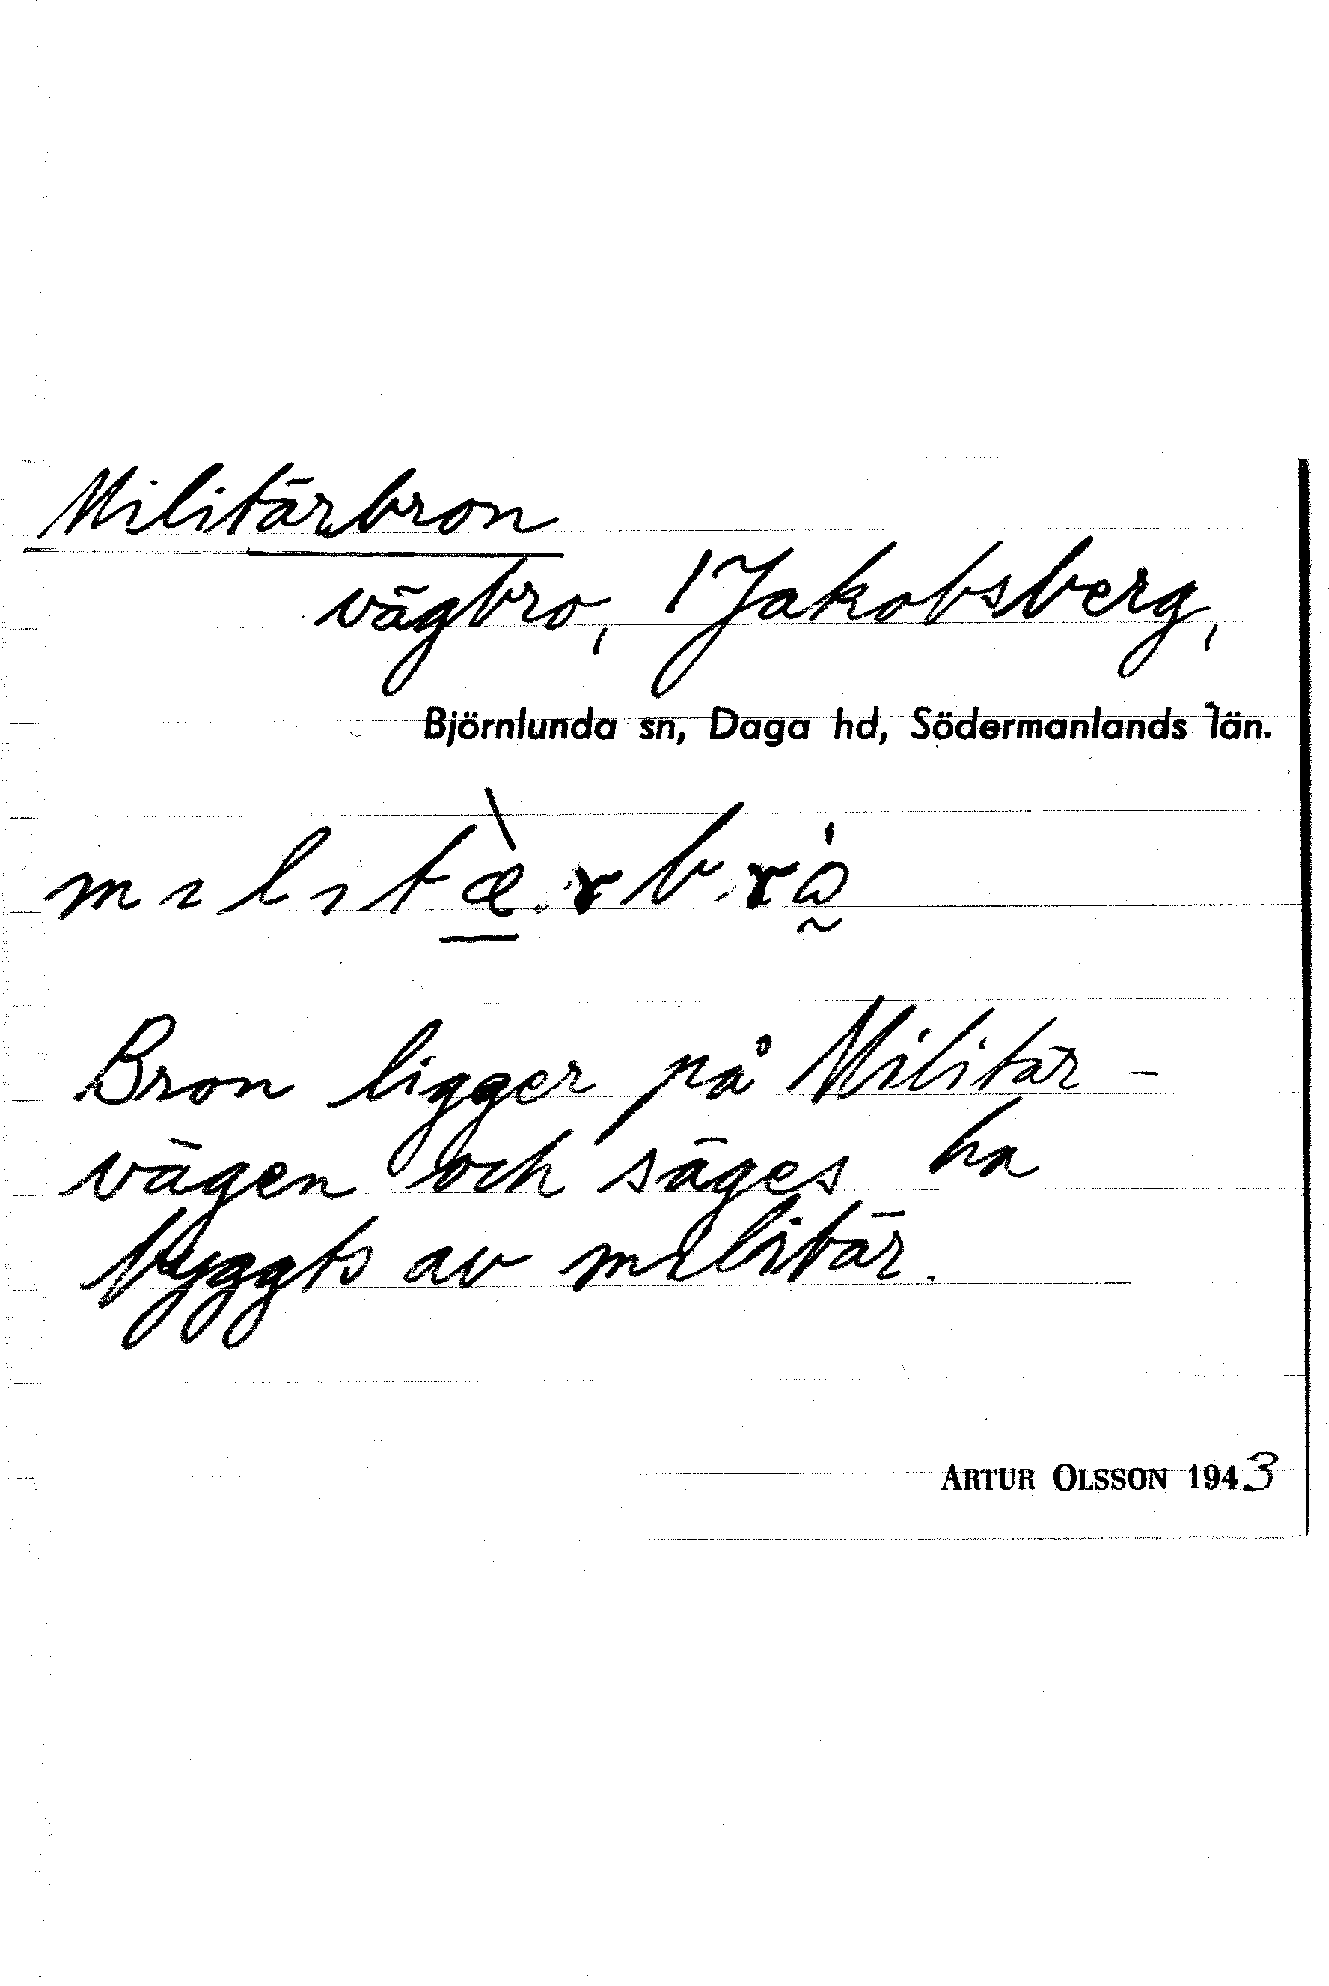 Militärbron
vägbro, 1 Jakobsberg,
Björnlunda sn, Daga hd, Södermanlands län.
mılıtæ̀.rbrå̀
Bron ligger på Militär-
vägen och säges ha
byggts av militär.
ARTUR OLSSON 1943